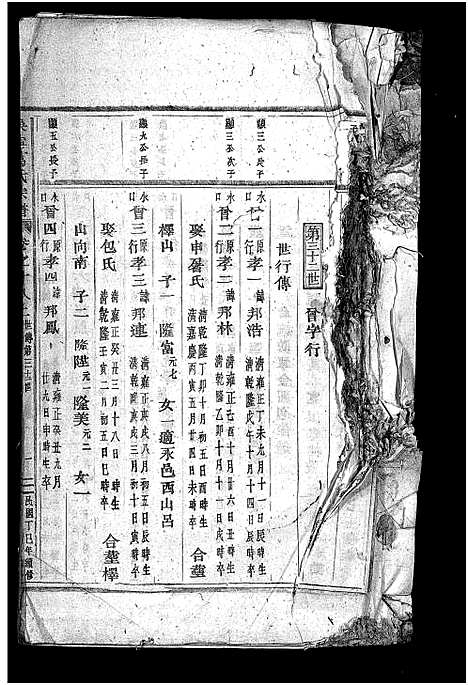 第三十三世 晉字行
世行傳
顯三公長子
永 晉一 原孝一 諱邦浩 清雍正丁未九月十一日辰時生 清乾隆戊午十月十四日辰時卒
顯三公次子
永 晉二 行孝二 諱邦林 清雍正己酉十月廿六日丑時生 清乾隆乙卯十月十一日戌時卒
娶申屠氏 清乾隆丁卯十月初五日酉時生 清嘉慶丙寅十月廿四日未時卒 合葬
檡山 子一 隆富元七 女一適永邑西山呂
顯九公長子
永 晉三 原行孝三 諱邦連 清雍正庚戌八月初五日辰時生 清乾隆庚戌三月初十日寅時卒
娶包氏 清雍正癸丑三月十八日 時生 清乾隆壬寅二月初五日巳時卒 合葬檡
山向南 子二 隆陞元一 隆美元二 女一
顯五公長子
永 晉四 原行孝四 諱邦鳳 清雍正癸丑九月廿九日申時生卒
世傳第三十三
民國丁巳年續修